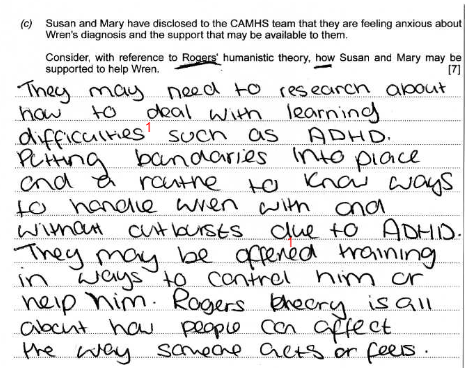 (c) Susan and Mary have disclosed to the CAMHS team that they are feeling anxious about
Wren's diagnosis and the support that may be available to them.
Consider, with reference to Rogers' humanistic theory, how Susan and Mary may be
supported to help Wren. [7]
They may need to research about
how to deal with learning
difficulties 1 such as ADHD.
Putting bandaries into place
and a routne to know ways
to handle wren with and
without outbursts due to ADHD.
They may be offered training
in ways to control him or
help him. Rogers theory is all
about how people can affect
the way someone acts or feels.